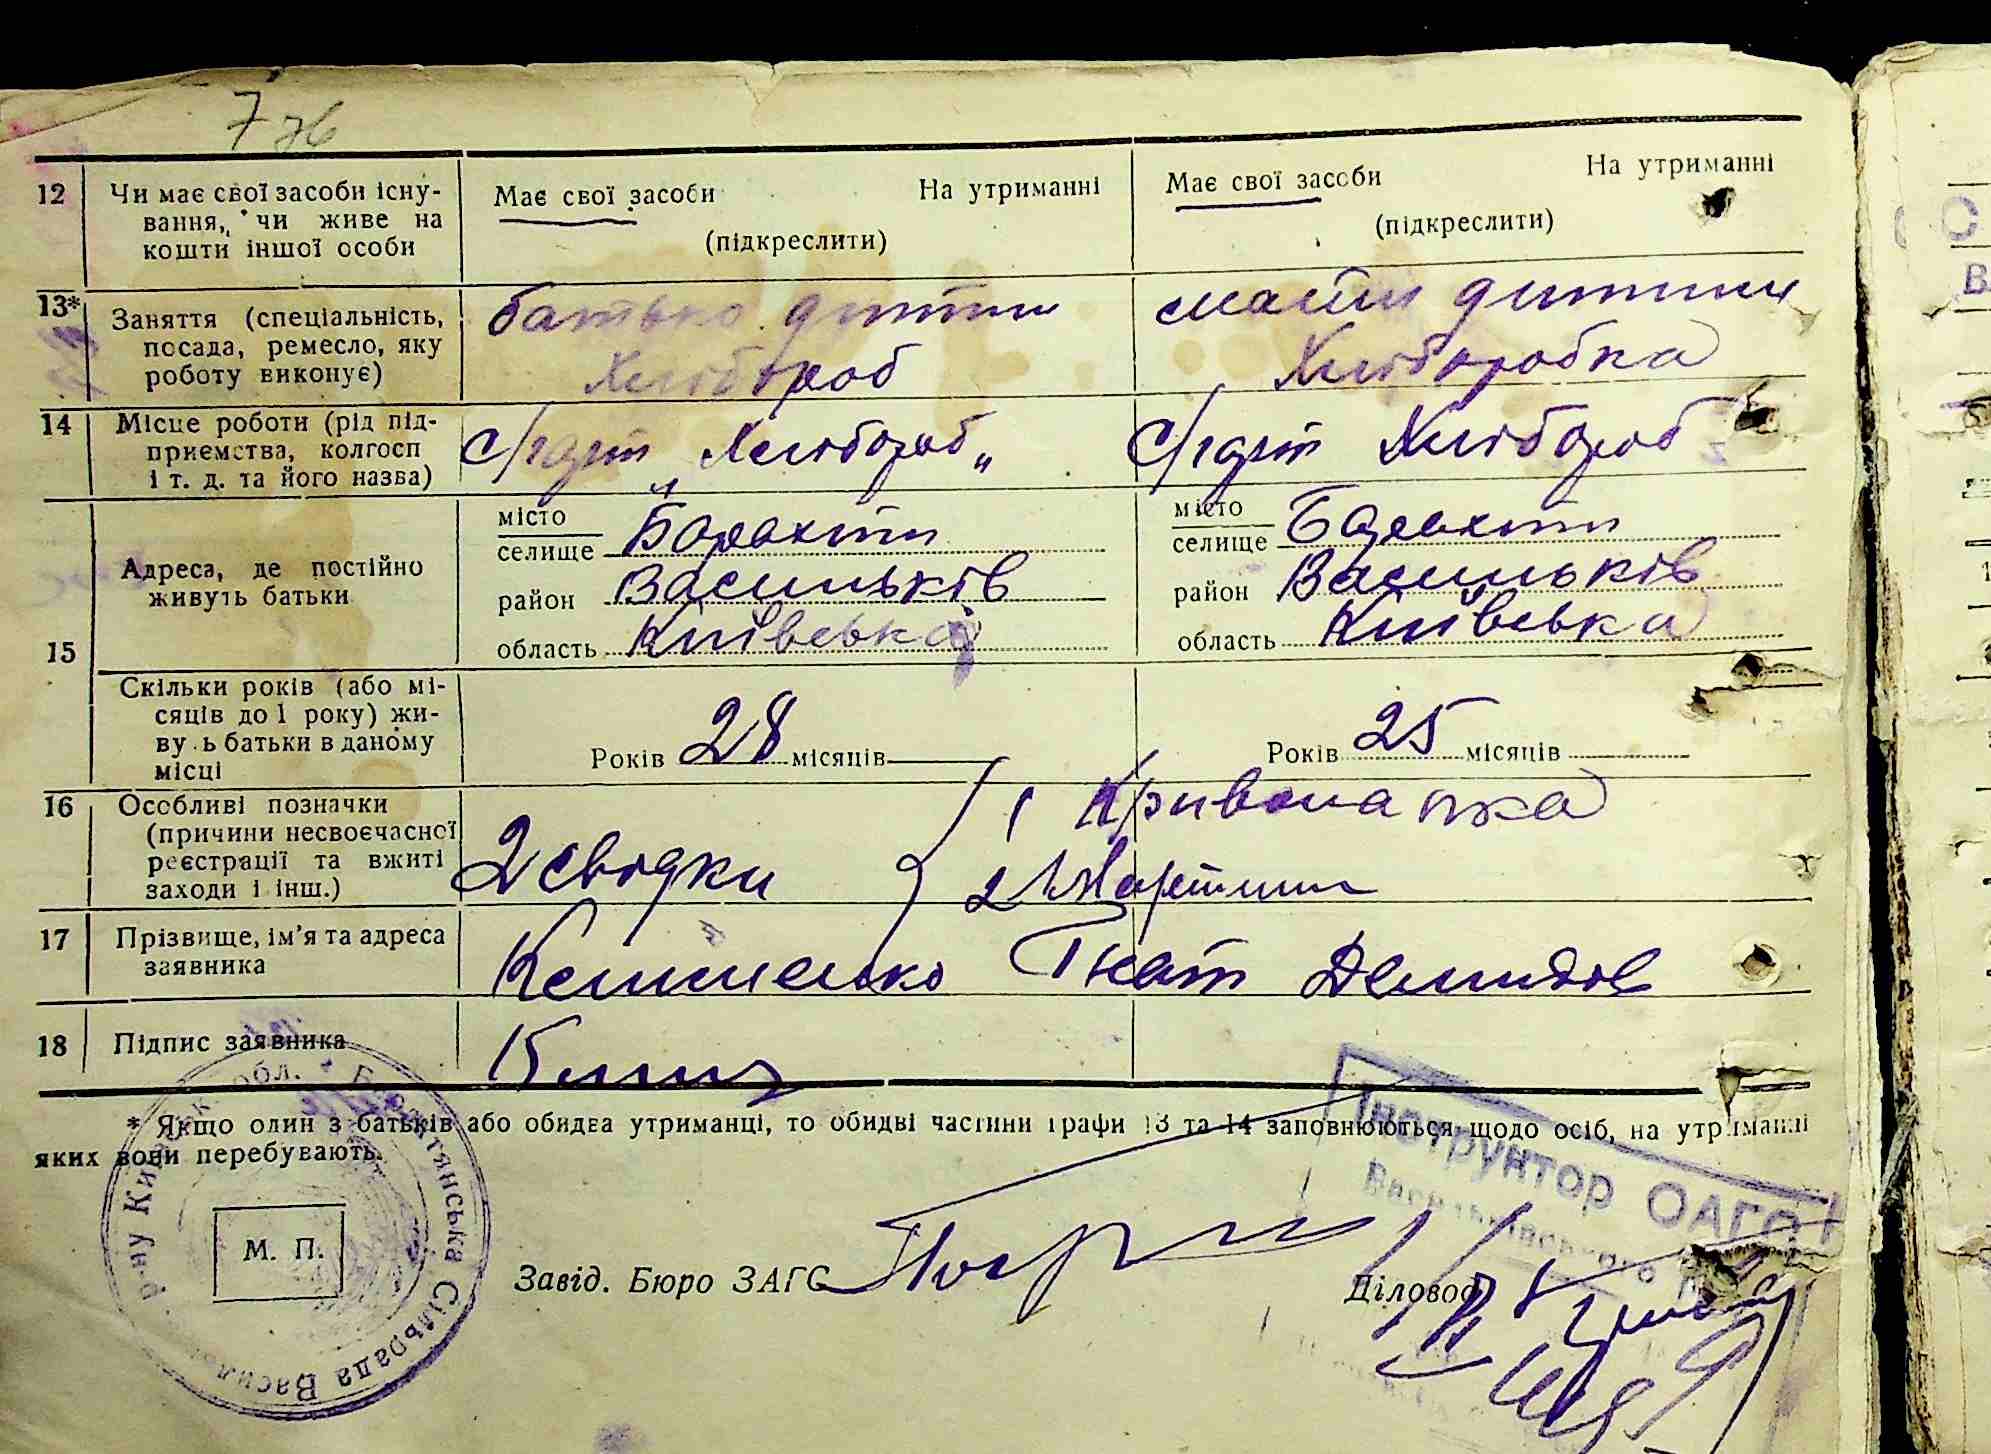 7 зв
12 Чи має свої засоби існу-
вання, чи живе на
кошти іншої особи
Має свої засоби На утриманні
(підкреслити)
Має свої засоби На утриманні
(підкреслити)
13* Заняття (спеціальність,
посада, ремесло, яку
роботу виконує)
батько дитини
Хлібороб
мати дитини
Хлиборобка
14 Місце роботи (рід під-
приємства, колгосп
і т. д. та його назва)
с/г арт „Хлибороб"
с/г арт Хлибороб
15 Адреса, де постійно
живуть батьки
місто
селище Барахти
район Васильків
область Київська
місто
селище Барахти
район Васильків
область Київська
Скільки років (або мі-
сяців до 1 року) жи-
вуть батьки в даному
місці
Років 28 місяців
Років 25 місяців
16 Особливі позначки
(причини несвоєчасної
реєстрації та вжиті
заходи і інш.)
2 свідки
1 Кривошапка
2 Мартини
17 Прізвище, ім'я та адреса
заявника
Гнат Демидов
18 Підпис заявника
* Якщо один з батьків або обидва утриманці, то обидві частини графи 13 та 14 заповнюються щодо осіб, на утриманні
яких вони перебувають.
М. П.
Завід. Бюро ЗАГС
Діловод
Інструктор ОАГС
Васильківського
Сільрада